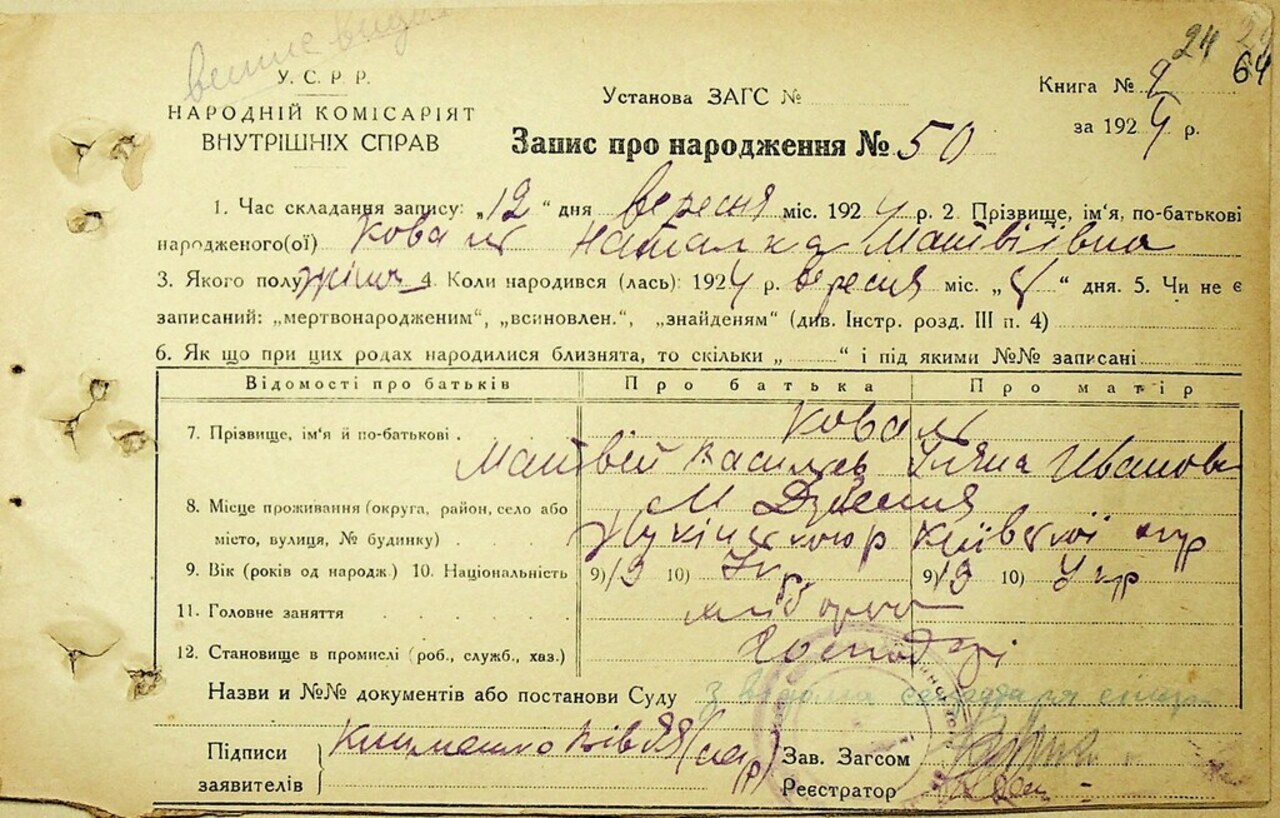 24 64
У. С. Р. Р.
НАРОДНІЙ КОМІСАРІЯТ
ВНУТРІШНІХ СПРАВ
Установа ЗАГС №
Книга №
за 1924 р.
Запис про народження № 50
1. Час складання запису: „12“ дня Вересня міс. 1924 р. 2. Прізвище, ім'я, по-батькові
народженого(ої) Коваль Наталка Матвіївна
3. Якого полу жіноч 4. Коли народився (лась): 1924 р. Вересня міс. „ “ дня. 5. Чи не є
записаний: „мертвонародженим“, „всиновлен.“, „знайденям“ (див. Інстр. розд. III п. 4)
6. Як що при цих родах народилися близнята, то скільки „ “ і під якими №№ записані
Відомості про батьків Про батька Про матір
7. Прізвище, ім'я й по-батькові . Коваль
Матвій Васильев Уляна Иванов
8. Місце проживання (округа, район, село або М
місто, вулиця, № будинку) . Київської
9. Вік (років од народж.) 10. Національність 9) 19 10) Укр 9) 19 10) Укр
11. Головне заняття хлібороб
12. Становище в промислі (роб., служб., хаз.) Господарі
Назви и №№ документів або постанови Суду з відома
Підписи
заявителів
Зав. Загсом
Реєстратор